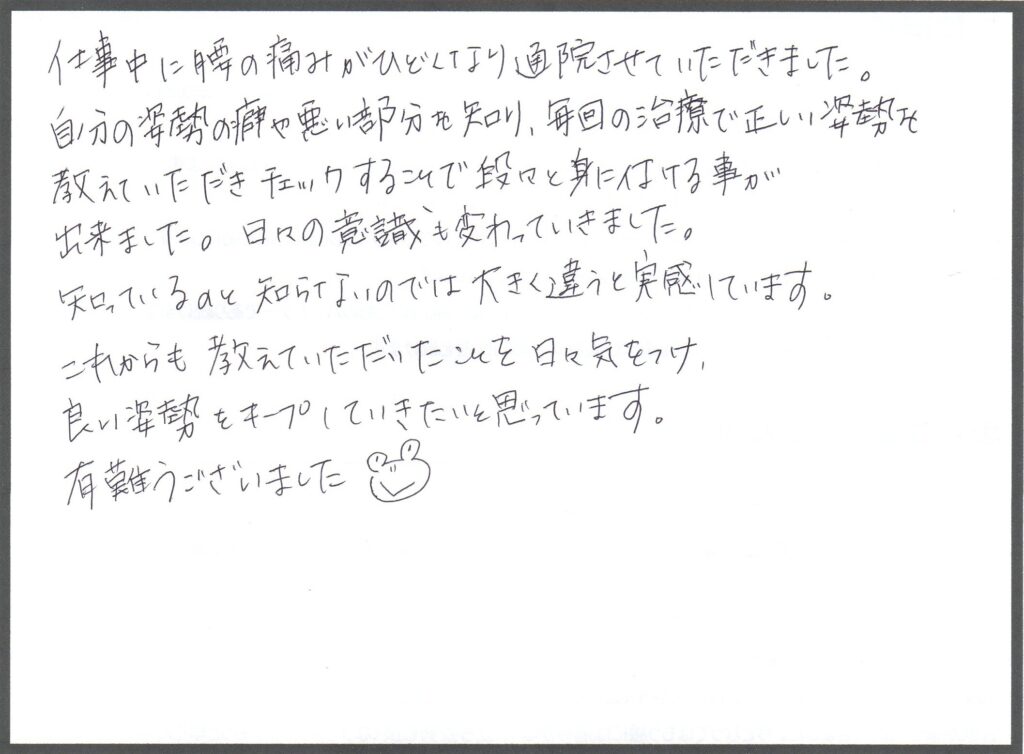 仕事中に腰の痛みがひどくなり通院させていただきました。
自分の姿勢の癖や悪い部分を知り、毎回の治療で正しい姿勢を
教えていただきチェックすることで段々と身に付ける事が
出来ました。日々の意識も変わっていきました。
知っているのと知らないのでは大きく違うと実感しています。
これからも教えていただいたことを日々気をつけ、
良い姿勢をキープしていきたいと思っています。
有難うございました